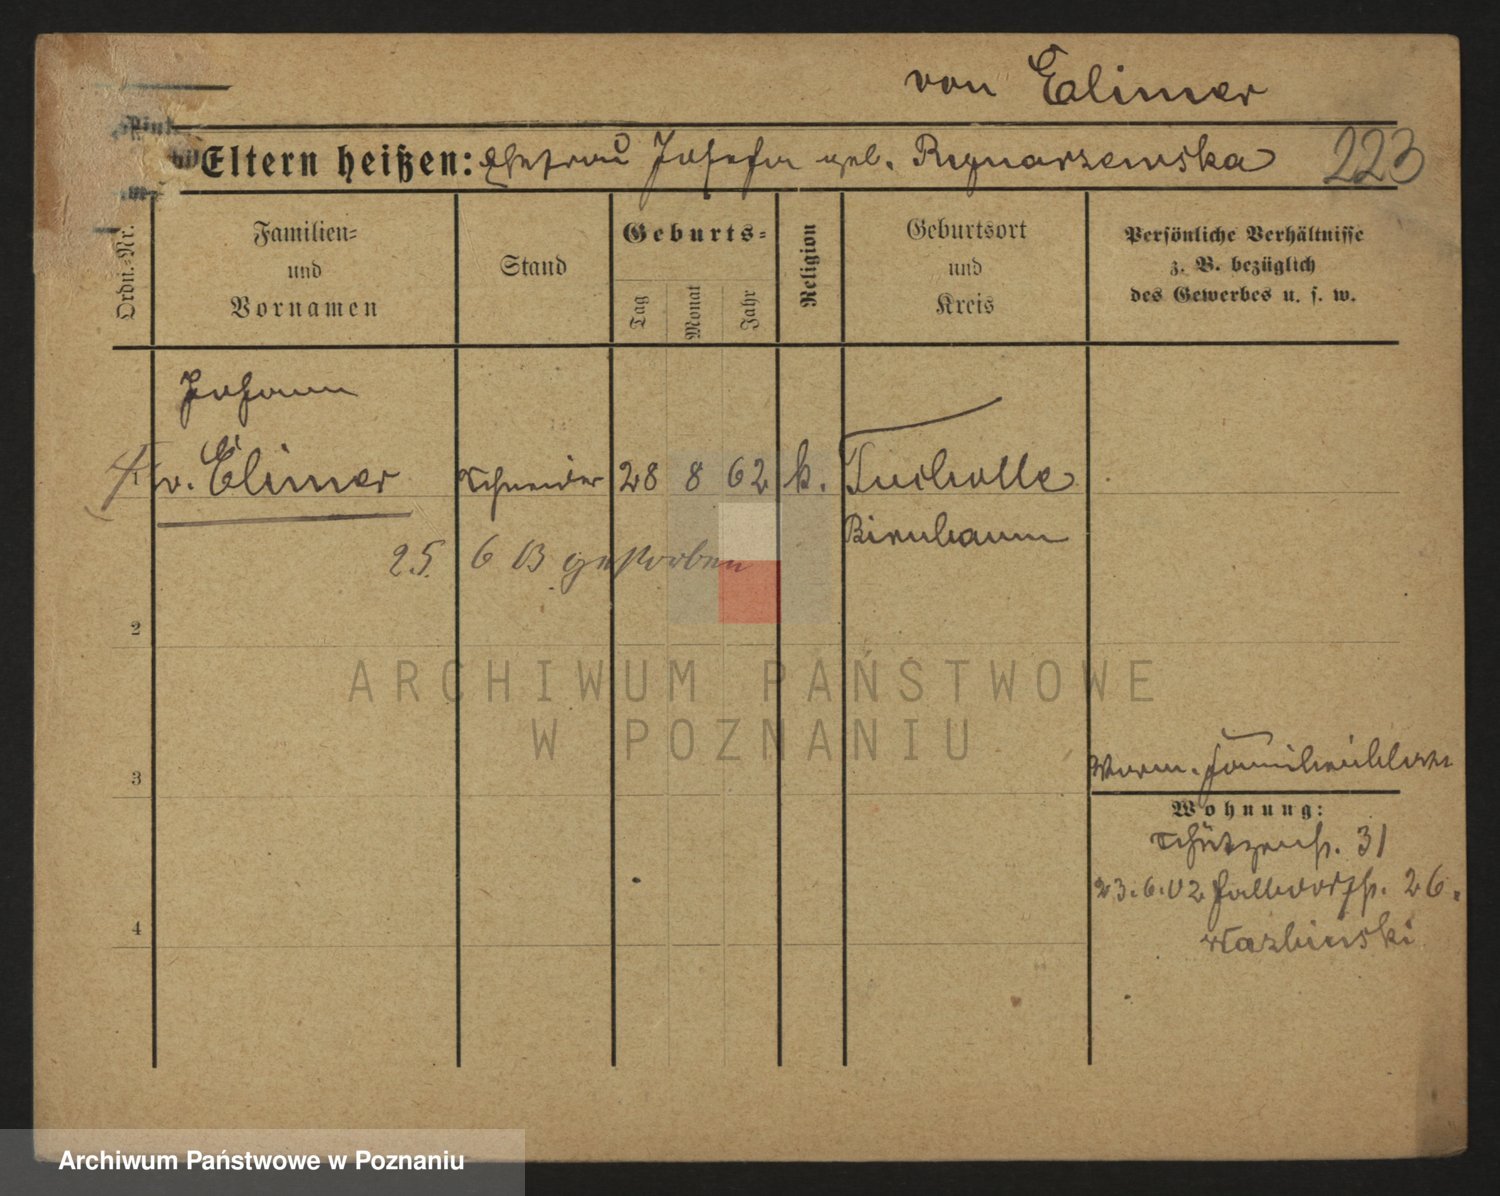 von Elimer
Eltern heißen: Ehefrau Josefa geb. Rynarzewska 223
Ordn.-Nr.
Familien-
und
Vornamen
Stand
Geburts-
Tag
Monat
Jahr
Religion
Geburtsort
und
Kreis
Persönliche Verhältnisse
z. B. bezüglich
des Gewerbes u. s. w.
Johann
1 v. Elimer Schneider 28 8 62 k. Tucholle
Birnbaum
25. 6 13 gestorben
2
ARCHIWUM PAŃSTWOWE
W POZNANIU
3
Familienblatt
Wohnung:
Schützenstr. 31
23.6.02 Halbdorfstr. 26.
4
Archiwum Państwowe w Poznaniu